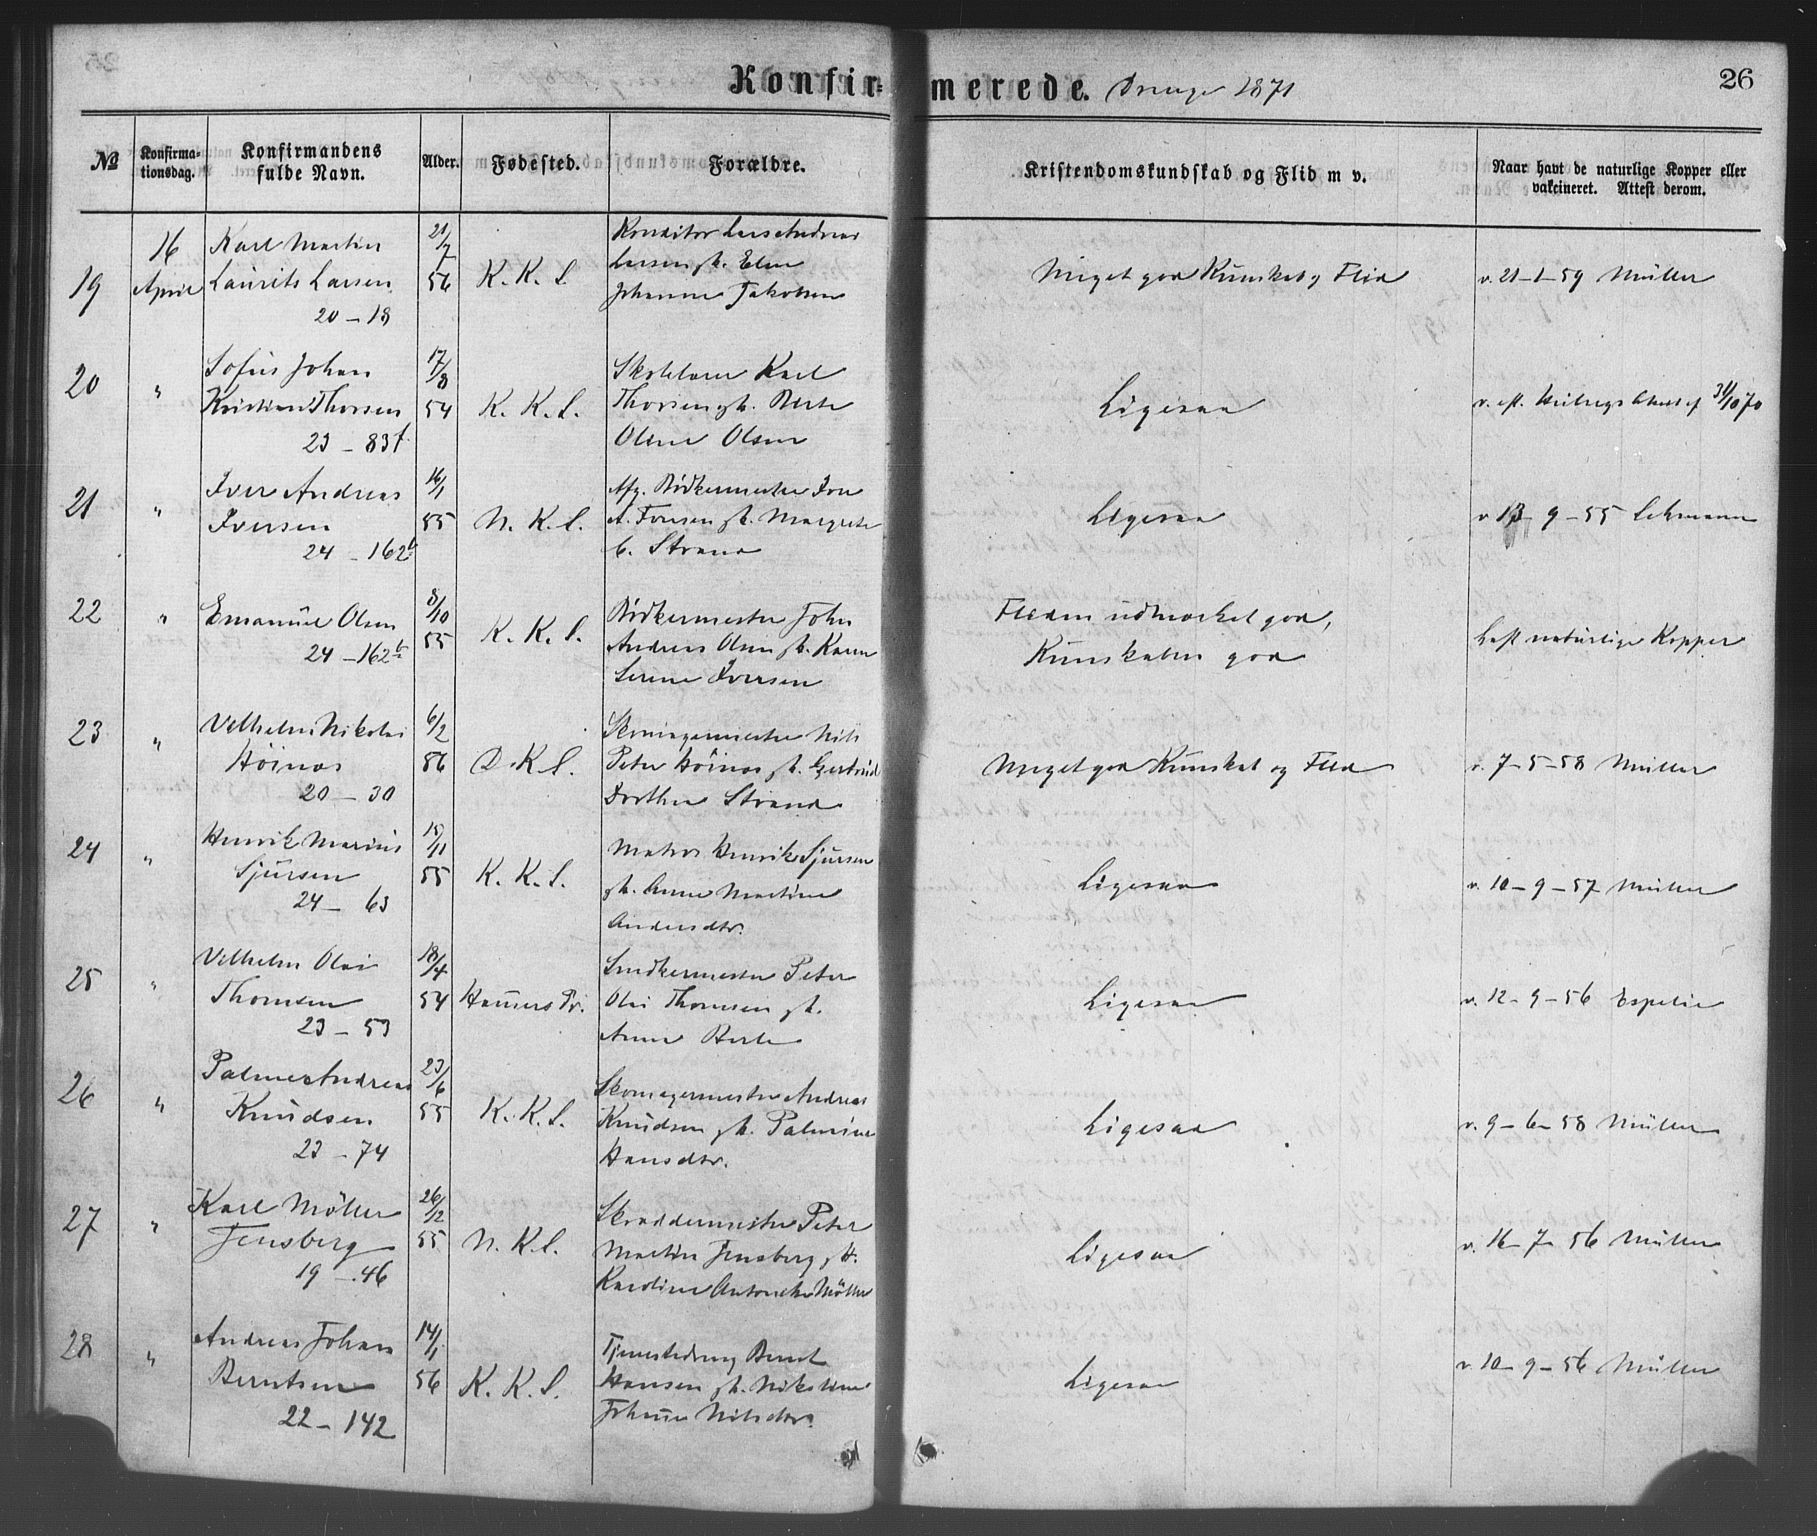 Konfirmerede. Drenge 1871
26
№
Konfirma-
tionsdag.
Konfirmandens
fulde Navn.
Alder.
Fødested.
Forældre.
Kristendomskundskab og Flid m v.
Naar havt de naturlige Kopper eller
vakcineret. Attest derom.
19
16
April
Karl Martin
Laurits Larsen
20 – 18
21/7
56
K. K. S.
Konditor Lars Andreas
Larsen gh. Elen
Johanne Jakobsen
Meget god Kunskab og Flid
v. 21–1–59 Müller
20
"
Sofus Johan
Kristian Thorsen
23 – 83f
17/8
54
K. K. S.
Skolelærer Karl
Thorsen gh. Berte
Oline Olsen
Ligesaa
v. eft. 31/10 70
21
"
Iver Andreas
Iversen
24 – 162b
16/1
55
N. K. S.
Afg. Bødkermester Iver
A. Iversen gh. Margrete
C. Strand
Ligesaa
v. 13 9–55 Lehmann
22
"
Emanuel Olsen
24 – 162b
8/10
55
K. K. S.
Bødkermester John
Andreas Olsen gh. Karen
Serine Iversen
Fliden udmærket god,
Kunskaben god
haft naturlige Kopper
23
"
Vilhelm Nikolai
Höinæs
20 – 30
6/2
56
D. K. S.
Skomagermester Nils
Peter Höinæs gh. Gertrud
Dorthea Strand
Meget god Kunskab og Flid
v. 7–5–58 Müller
24
"
Henrik Marius
Sjursen
24 – 63
15/11
55
K. K. S.
Matros Henrik Sjursen
gh. Anne Martine
Andersdtr.
Ligesaa
v. 10–9–57 Müller
25
"
Vilhelm Olai
Thomsen
23 – 53
18/4
54
Hammers Pr.
Smedkermester Peter
Olai Thomsen gh.
Anne Berte
Ligesaa
v. 12–9–56 Espelie
26
"
Palmer Andreas
Knudsen
23 – 74
23/6
55
K. K. S.
Skomagermester Andreas
Knudsen gh. Palmine
Hansdtr.
Ligesaa
v. 9–6–58 Müller
27
"
Karl Möller
Jensberg
19 – 46
26/12
55
N. K. S.
Skræddermester Peter
Martin Jensberg gh.
Karoline Antonette Möller
Ligesaa
v. 16–7–56 Müller
28
"
Andreas Johan
Berntsen
22 – 142
14/1
56
K. K. S.
Tjenestedreng Bernt
Hansen gh. Nikoline
Johanne Nilsdtr.
Ligesaa
v. 10–9–56 Müller